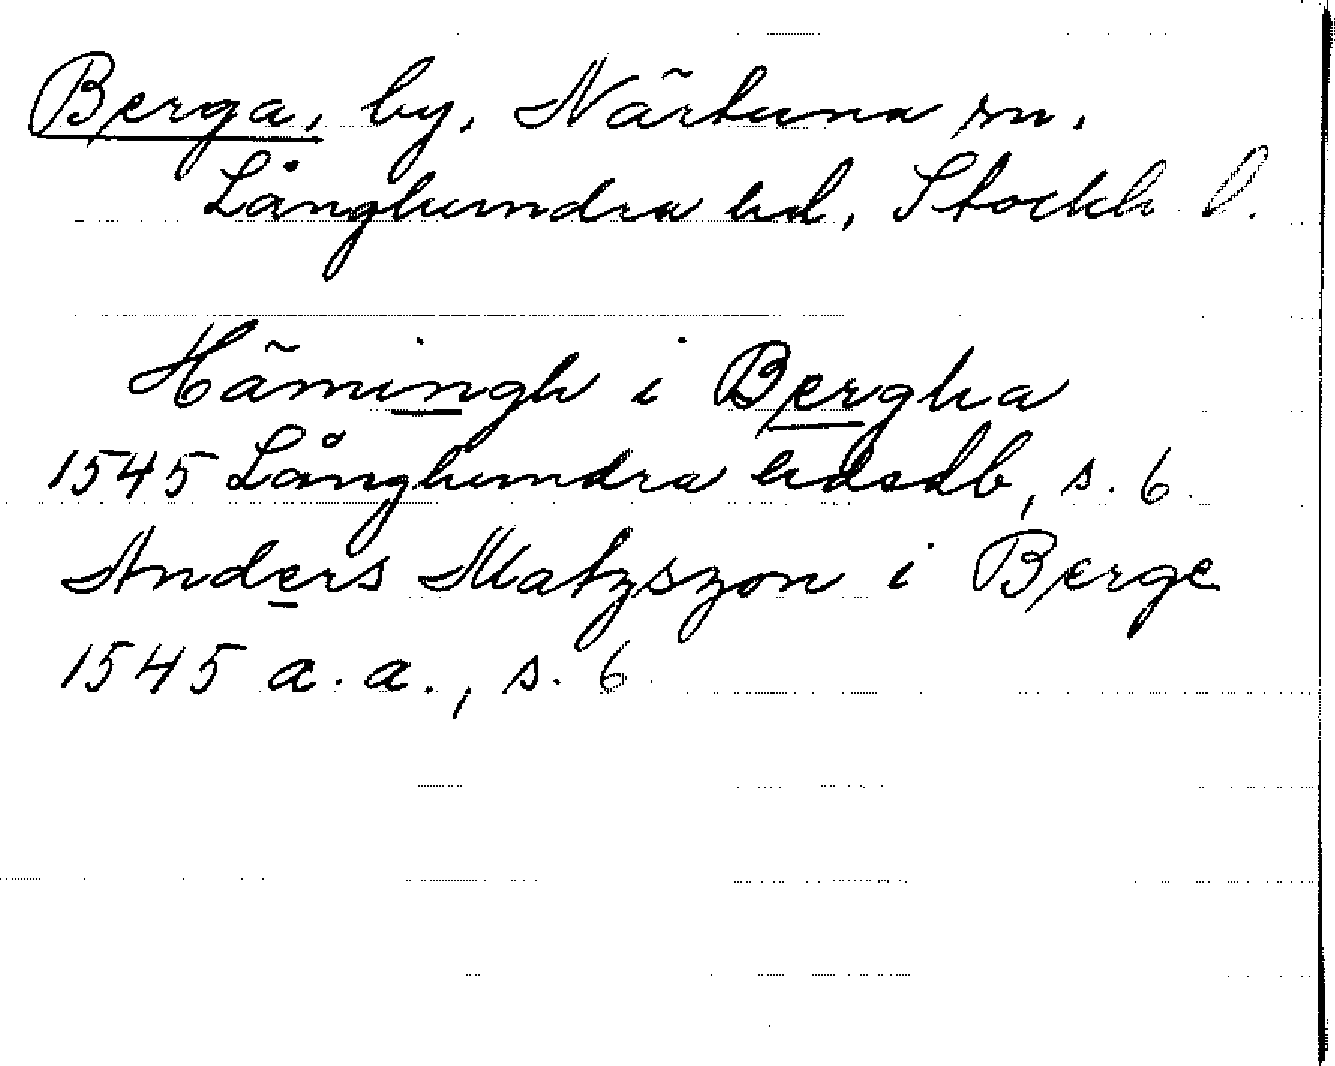 Berga, by, Närtuna sn.
Långhundra hd, Stockh l.
Hämingh i Bergha
1545 Långhundra hdsdb, s. 6.
Anders Matzszon i Berge
1545 a. a., s. 6.